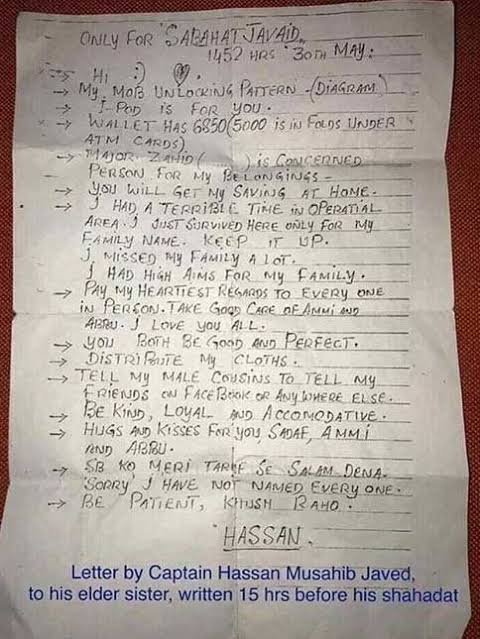 ONLY FOR SABAHAT JAVAID
1452 HRS 30TH MAY:
→ HI :) ♡.
→ MY MOB UNLOCKING PATTERN - (DIAGRAM)
→ I-POD IS FOR YOU.
→ WALLET HAS 6850 (5000 IS IN FOLDS UNDER
ATM CARDS)
→ MAJOR ZAHID ( ) IS CONCERNED
PERSON FOR MY BELONGINGS -
→ YOU WILL GET MY SAVING AT HOME.
→ I HAD A TERRIBLE TIME IN OPERATIAL
AREA. I JUST SURVIVED HERE ONLY FOR MY
FAMILY NAME. KEEP IT UP.
I MISSED MY FAMILY A LOT.
I HAD HIGH AIMS FOR MY FAMILY.
→ PAY MY HEARTIEST REGARDS TO EVERY ONE
IN PERSON. TAKE GOOD CARE OF AMMI AND
ABBU. I LOVE YOU ALL.
→ YOU BOTH BE GOOD AND PERFECT.
→ DISTRIBUTE MY CLOTHS.
→ TELL MY MALE COUSINS TO TELL MY
FRIENDS ON FACEBOOK OR ANY WHERE ELSE.
→ BE KIND, LOYAL AND ACCOMODATIVE.
→ HUGS AND KISSES FOR YOU, SADAF, AMMI
AND ABBU.
→ SB KO MERI TARAF SE SALAM DENA.
SORRY I HAVE NOT NAMED EVERY ONE.
→ BE PATIENT, KHUSH RAHO.
HASSAN.
Letter by Captain Hassan Musahib Javed,
to his elder sister, written 15 hrs before his shahadat